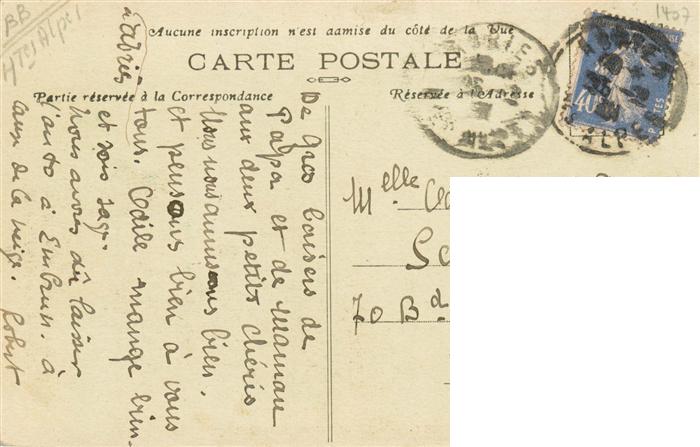 BB
Htes Alpes
1407
Aucune inscription n'est admise du côté de la Vue
CARTE POSTALE
Partie réservée à la Correspondance
Réservée à l'Adresse
De gros baisers de
Papa et de Maman
aux deux petits chéris
Nous nous amusons bien.
et pensons bien à vous
tous. Odile mange bien
et sois sage.
Nous avons dû laisser
l'auto à Embrun. à
aux de la neige. Robert
à Abriès
ABRIES
40
POSTES
ALPES
Melle
70 Bd